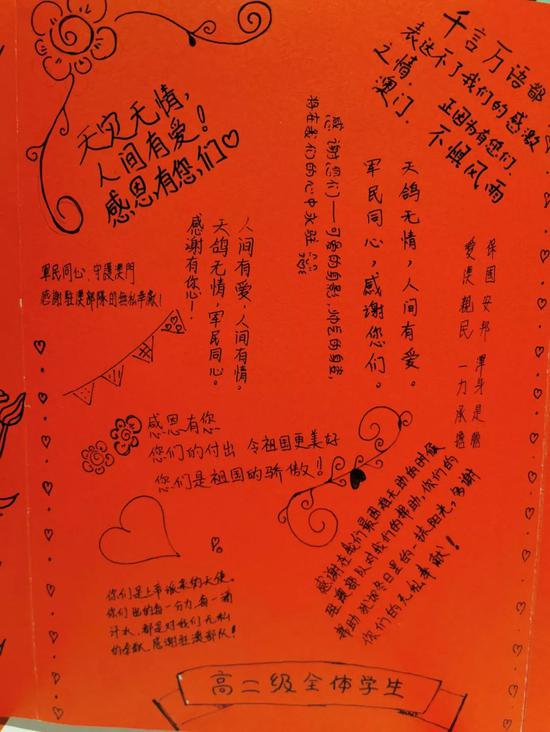 天灾无情,
人间有爱!
感恩有您,们
千言万语都
表达不了我们的感激
之情.
正因为有您们.
澳门.
不惧风雨
感谢您们——可爱的
将在我们的心中永驻
天鸽无情,人间有爱。
军民同心,感谢您们。
人间有爱,人间有情。
天鸽无情,军民同心。
感谢有您心!
軍民同心、守護澳門
感謝駐澳部隊的無私奉獻!
保國安邦 渾身是膽
愛澳親民 一力承擔
感恩有您
您们的付出 令祖国更美好
您们是祖国的骄傲!
感谢在我们最困难无助的时候
驻澳部队对我们的帮助,你们的
帮助就像冬日里的一抹阳光,多谢
你们的无私奉献!
你们是上帝派来的天使.
你们出的每一分力,每一滴
汗水,都是对我们无私
的奉献.感谢驻澳部队!
高二级全体学生